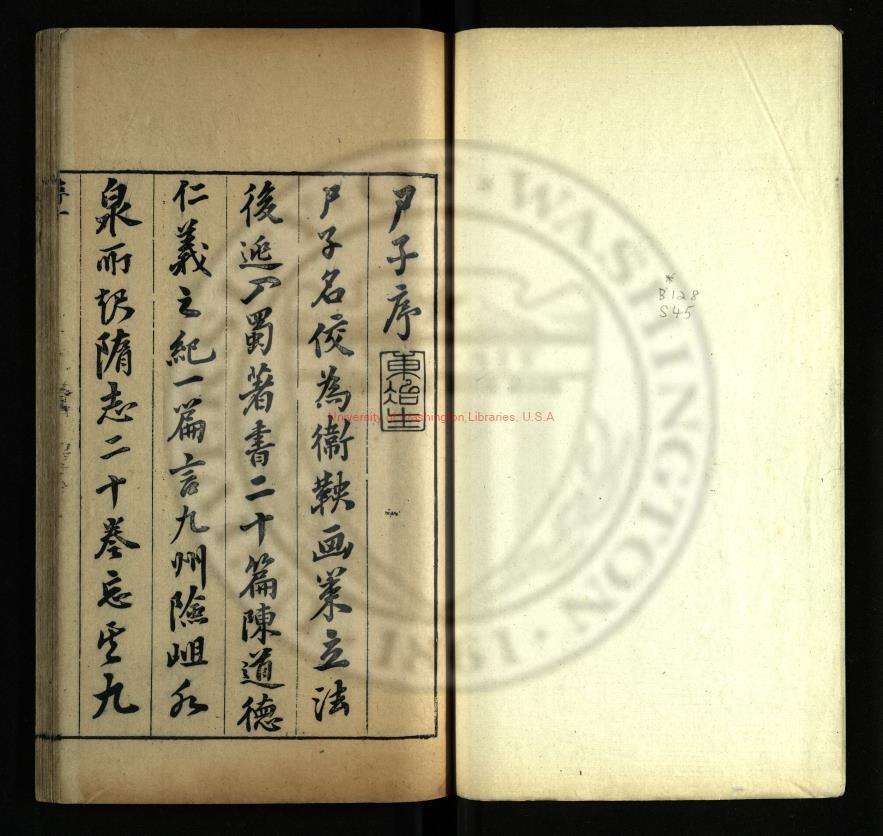 尸子序
尸子名佼為衛鞅画策立法
後逃入蜀著書二十篇陳道德
仁義之紀一篇言九州險岨水
泉所起隋志二十卷忘其九
序一
University of Washington Libraries, U.S.A
WASHINGTON
1861
*
B128
S45